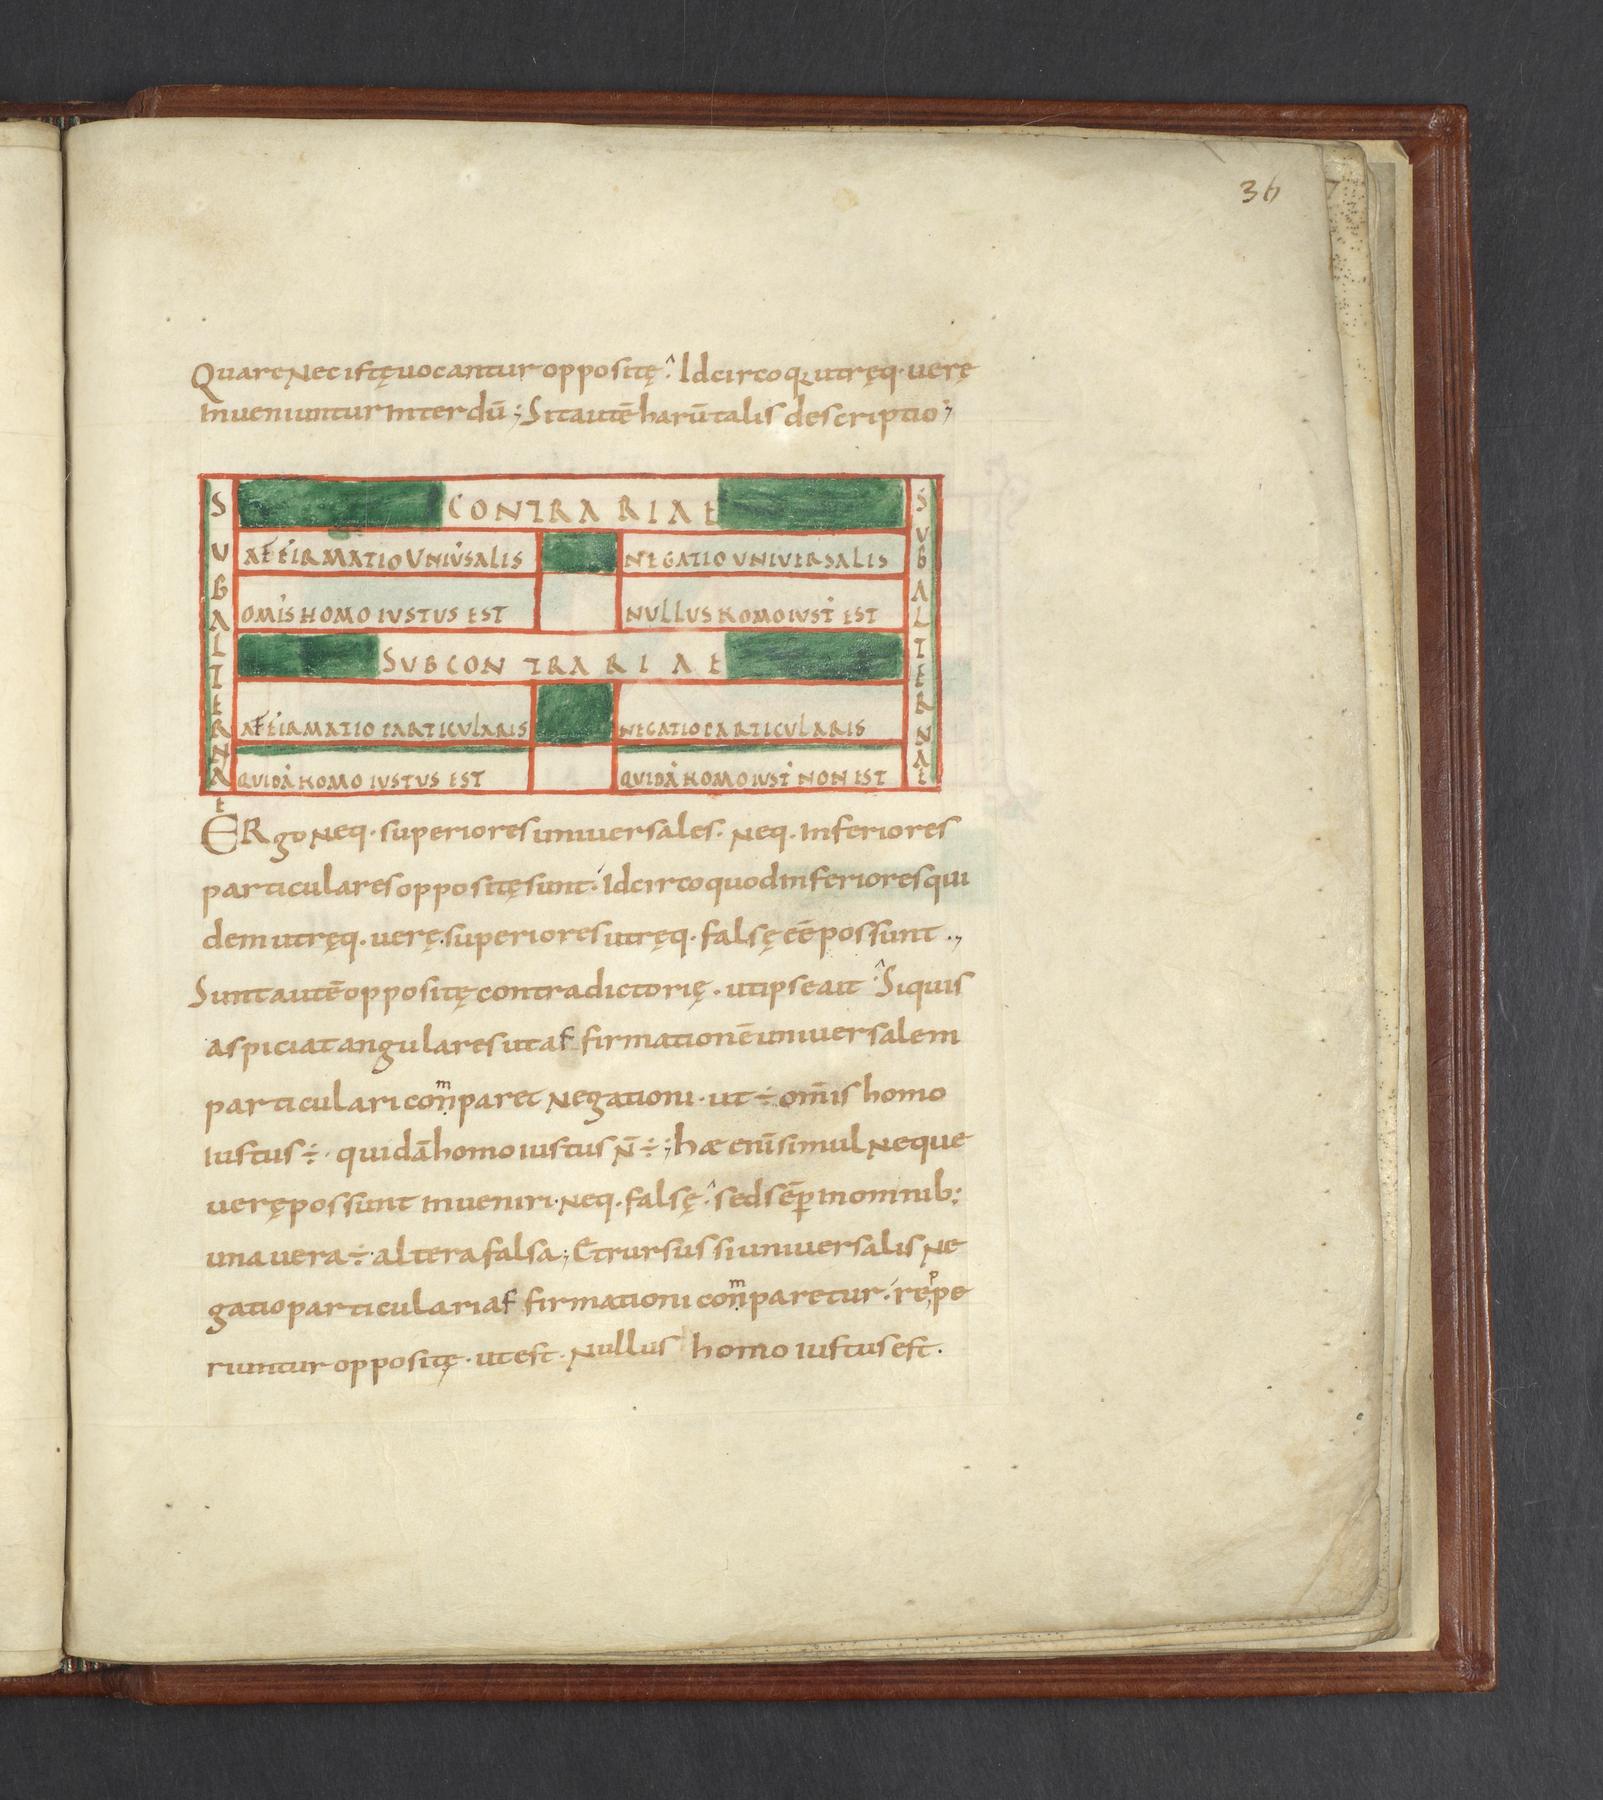 36
Quare Nec istę vocantur oppositę. Idcirco q; utręq· verę
inveniuntur interdū; Sit autē harū talis descriptio;
CONTRARIAE
SUBALTERNAE
SUBALTERNAE
AFFIRMATIO UNIVSALIS NEGATIO UNIVERSALIS
OMIS HOMO IUSTUS EST NULLUS HOMO IUST EST
SUBCONTRARIAE
AFFIRMATIO PARTICULARIS NEGATIO PARTICULARIS
QUIDĀ HOMO IUSTUS EST QUIDĀ HOMO IUST NON EST
ERgo Neq· superiores universales. Neq· inferiores
particulares oppositę sunt. Idcirco quod inferiores qui
dem utręq· verę. superiores utręq· falsę eē possunt.,
Sunt autē oppositę contradictorię. ut ipse ait. Si quis
aspiciat angulares ut af firmationē universalem
particulari conmparet Negationi· ut ÷ om̄is homo
iustus ÷· quidā homo iustus n̄ ÷; hæ enī simul Neque
verę possunt inveniri· Neq· falsę. sed sēp in omnib;
una vera ÷· altera falsa; Et rursus si universalis Ne
gatio particulari af firmationi conmparetur. reppe
riuntur oppositę· ut est· Nullus homo iustus est.